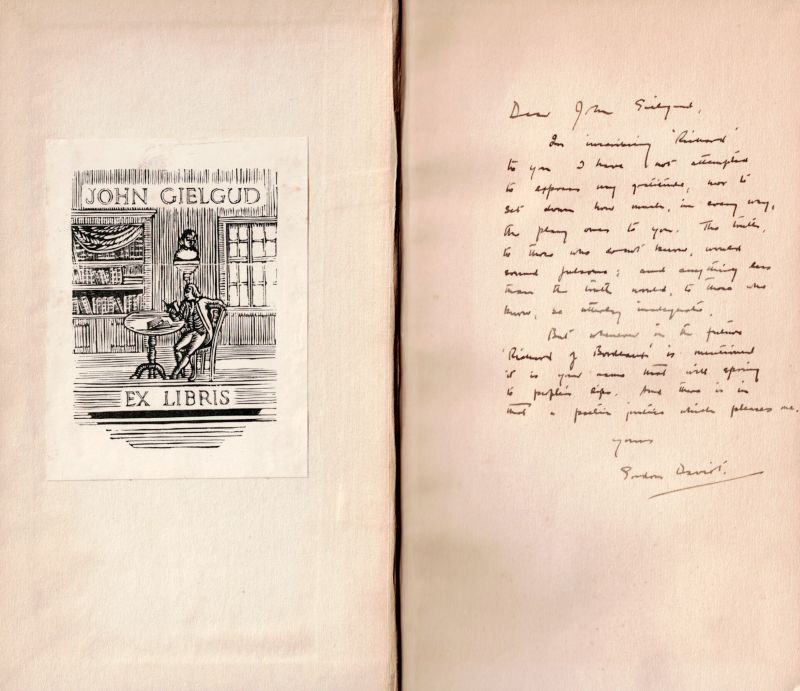 JOHN GIELGUD
EX LIBRIS
Dear John Gielgud,
In inscribing 'Richard'
to you I have not attempted
to express my gratitude, nor to
set down how much, in every way,
the play owes to you. The truth,
to those who don't know, would
sound fulsome; and anything less
than the truth would, to those who
know, be utterly inadequate.
But whenever in the future
'Richard of Bordeaux' is mentioned
it is your name that will spring
to people's lips. And there is in
that a poetic justice which pleases me.
yours
Gordon Daviot.